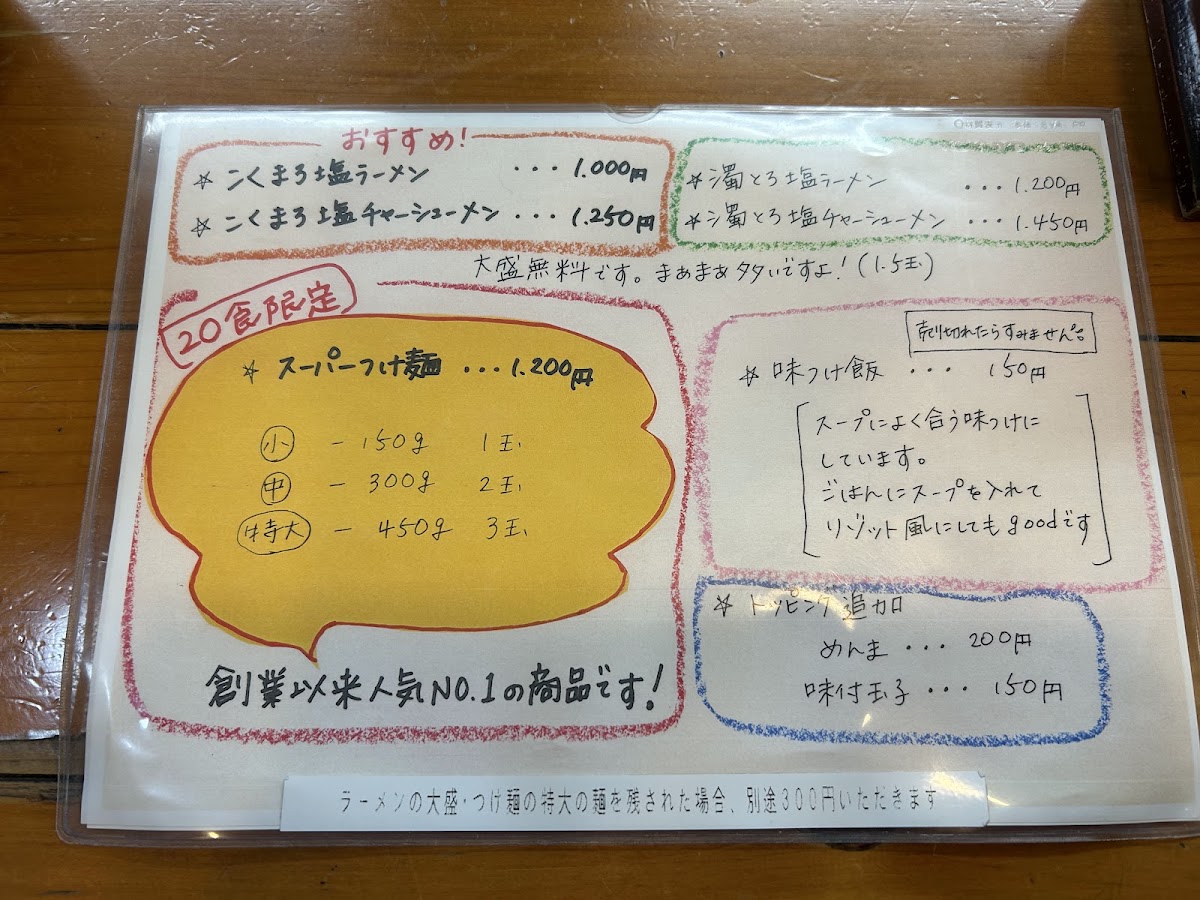 おすすめ!
☆ こくまろ塩ラーメン ・・・ 1.000円
☆ こくまろ塩チャーシューメン ・・・ 1.250円
☆ 濁とろ塩ラーメン ・・・ 1.200円
☆ 濁とろ塩チャーシューメン ・・・ 1.450円
大盛無料です。まあまあ多いですよ!(1.5玉)
20食限定
☆ スーパーつけ麺 ・・・ 1.200円
小 − 150g 1玉
中 − 300g 2玉
特大 − 450g 3玉
創業以来人気NO.1の商品です!
売り切れたらすみません。
☆ 味つけ飯 ・・・ 150円
スープによく合う味つけに
しています。
ごはんにスープを入れて
リゾット風にしてもgoodです
☆ トッピング追加
めんま ・・・ 200円
味付玉子 ・・・ 150円
ラーメンの大盛・つけ麺の特大の麺を残された場合、別途300円いただきます